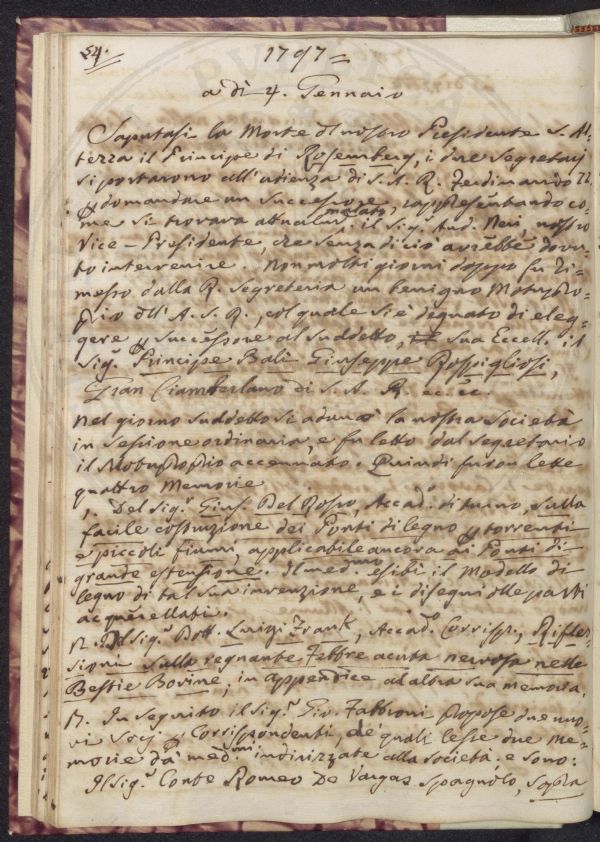 54.
1797=
a dì 4. Gennaio
Saputasi la Morte del nostro Presidente S. Al-
tezza il Principe di Rosemberg, i due Segretarj
si portarono all'udienza di S. A. R. Ferdinando III.
p domandare un Successore, rappresentando co-
me si trovava attualm. malato, il Sig.r Aud. Neri, nostro
Vice-Presidente, che senza di ciò avrebbe dovu-
to intervenire. Non molti giorni doppo fu ri-
messo dalla R. Segreteria un benigno Motupro-
prio dell'A. S. R., col quale si è degnato di eleg-
gere p successore al suddetto, sua Eccell. il
Sig.r Principe Balì Giuseppe Rospigliosi,
Gran Ciamberlano di S. A. R. ec. ec.
Nel giorno suddetto si adunò la nostra Società
in Sessione ordinaria, e fu letto dal Segretario
il Motuproprio accennato. Quindi furon lette
quattro Memorie
1. Del Sig.r Gius. Del Rosso, Accad.o di turno, sulla
facile costruzione dei Ponti di legno p torrenti
e piccoli fiumi, applicabile ancora ai Ponti di
grande estensione. Il medmo esibì il Modello di
legno di tal sua invenzione, e i disegni delle parti
acquerellati.
Del Sig.r Dott. Luigi Frank, Accad.o Corrisp., Rifles-
sioni sulla regnante Febbre acuta nervosa nelle
Bestie Bovine, in appendice ad altra sua memoria.
In seguito il Sig.r Gio. Fabbroni propose due nuo-
vi Socj p Corrispondenti, de' quali lesse due Me-
morie da' medmi indirizzate alla Società, e sono:
Il Sig.r Conte Romeo De Vargas Spagnolo, sopra